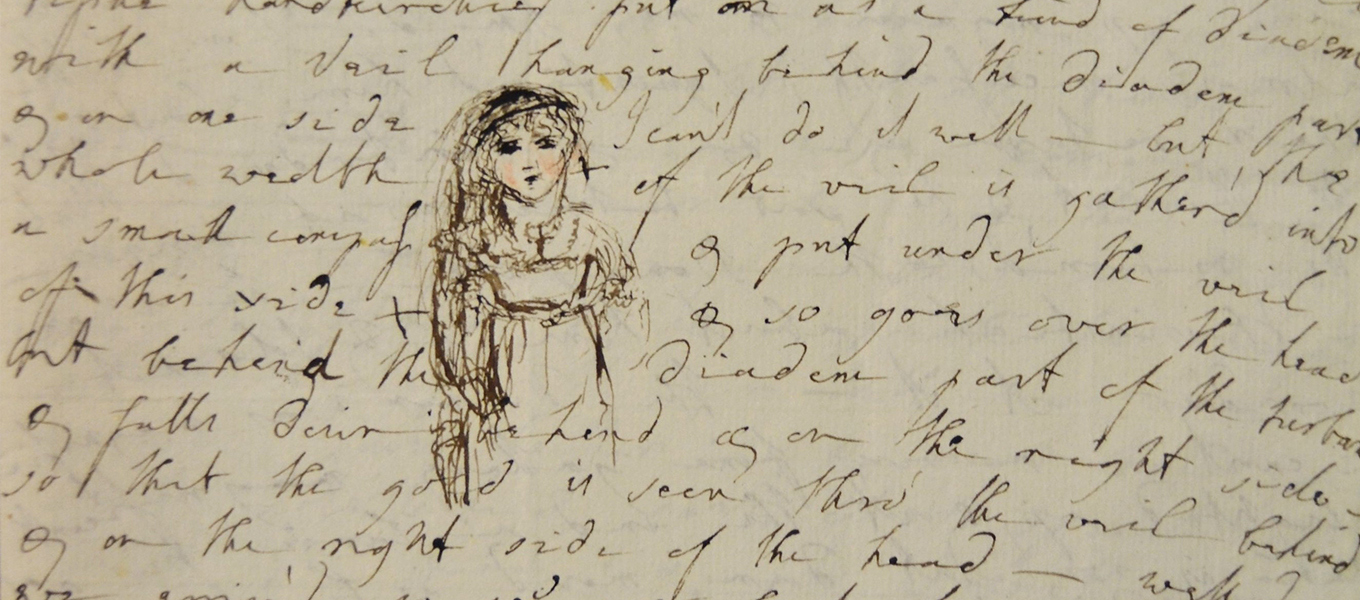 handkerchief put on as a kind of diadem
with a Vail hanging behind the diadem part
& on one side I can't do it well — but the
whole width + of the veil is gather'd into
a small compass & put under the veil
of this side + & so goes over the head
but behind the Diadem part of the turban
& falls down behind & on the right side
so that the gold is seen thro' the veil behind
& on the right side of the head — well